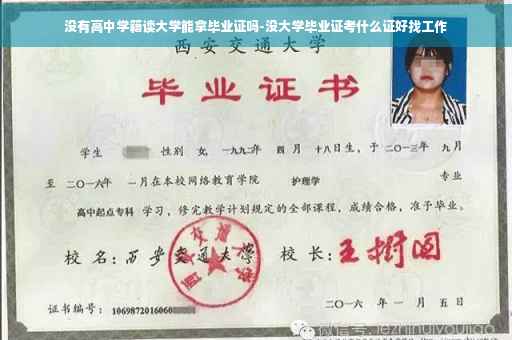 没有高中学籍读大学能拿毕业证吗-没大学毕业证考什么证好找工作
西安交通大学
毕业证书
学生 性别 女, 一九九二年 四月 十八日生, 于 二〇一三年 九月
至 二〇一六年 一月在本校网络教育学院 护理学 专业
高中起点专科 学习, 修完教学计划规定的全部课程, 成绩合格, 准予毕业。
校名: 西安交通大学 校长: 王树国
证书编号: 1069872016060
二〇一六年 一月 五日
微信号: jezhinuiyoujiao